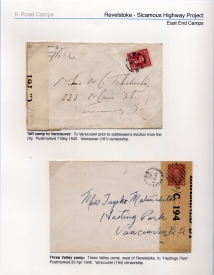 6. Road Camps
Revelstoke - Sicamous Highway Project
East End Camps
C. 161
228 Main St.
Taft camp to Vancouver. To Vancouver prior to addressee's eviction from the
city. Postmarked 7 May 1942. Vancouver (161) censorship.
C. 194
Miss
Hasting Park
Vancouver B.C.
Three Valley camp. Three Valley camp, west of Revelstoke, to "Hastings Park".
Postmarked 22 Apr 1942. Vancouver (194) censorship.